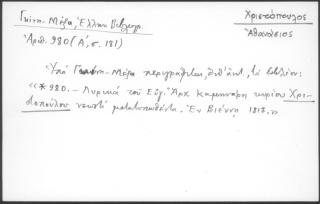 Γκίνη-Μέξα, Ἑλλην. Βιβλιογρ.
Ἀριθ. 980 (Α', σ. 181)
Χριστόπουλος
Ἀθανάσιος
Ὑπό Γκίνη-Μέξα περιγράφεται, ὑπ' ἀριθ., τό βιβλίον:
«*980. – Λυρικά τοῦ Εὐγ. Ἄρχ. Καμηνάρη κυρίου Χρι-
στοπούλου νεωστί μετατυπωθέντα. Ἐν Βιέννῃ 1818.»